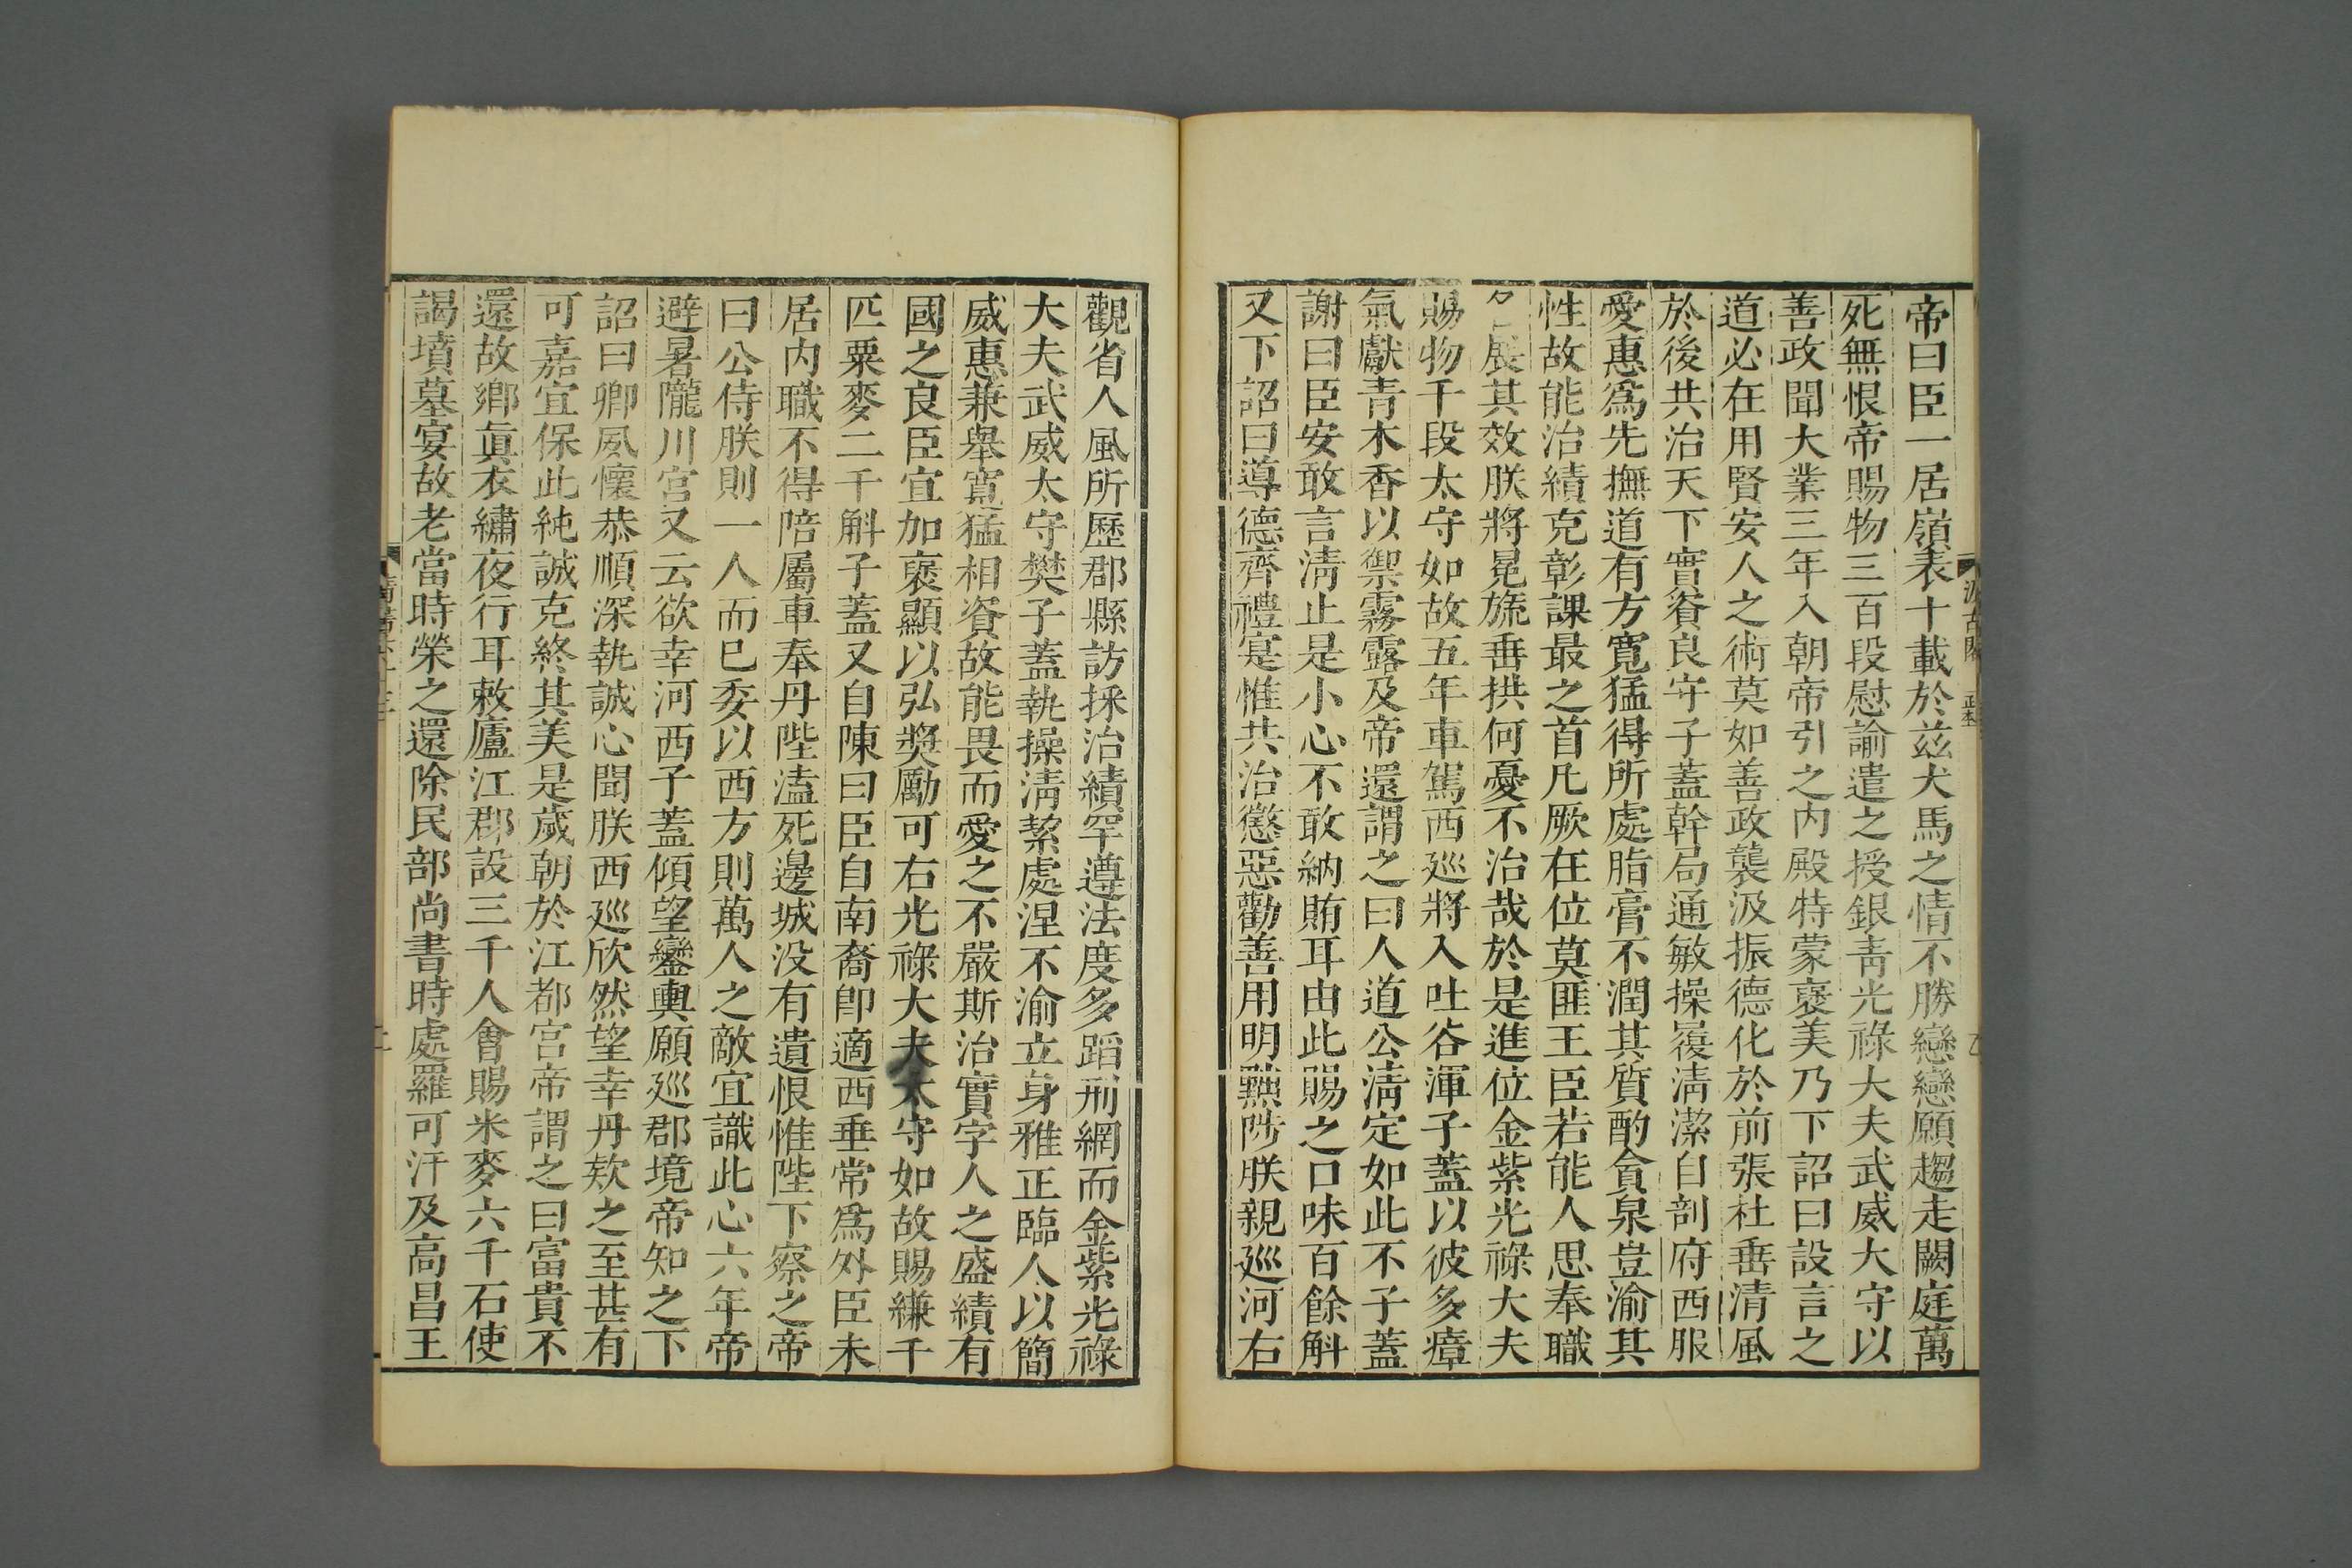 帝曰臣一居嶺表十載於兹犬馬之情不勝戀戀願趨走闕庭萬
死無恨帝賜物三百段慰諭遣之授銀靑光祿大夫武威大守以
善政聞大業三年入朝帝引之内殿特蒙襃美乃下詔曰設言之
道必在用賢安人之術莫如善政襲汲振德化於前張杜垂清風
於後共治天下實資良守子蓋幹局通敏操履淸潔自剖府西服
愛惠爲先撫道有方寬猛得所處脂膏不潤其質酌貪泉豈渝其
性故能治績克彰課最之首凡厥在位莫匪王臣若能人思奉職
各展其效朕將冕旒垂拱何憂不治哉於是進位金紫光祿大夫
賜物千段太守如故五年車駕西巡將入吐谷渾子蓋以彼多瘴
氣獻青木香以禦霧露及帝還謂之曰人道公淸定如此不子蓋
謝曰臣安敢言淸止是小心不敢納賄耳由此賜之口味百餘斛
又下詔曰導德齊禮寔惟共治懲惡勸善用明黜陟朕親巡河右
汲古閣
正本
觀省人風所歷郡縣訪採治績罕遵法度多蹈刑網而金紫光祿
大夫武威太守樊子蓋執操淸絜處涅不渝立身雅正臨人以簡
威惠兼舉寬猛相資故能畏而愛之不嚴斯治實字人之盛績有
國之良臣宜加襃顯以弘奬勵可右光祿大夫太守如故賜縑千
匹粟麥二千斛子蓋又自陳曰臣自南裔卽適西垂常爲外臣未
居内職不得陪屬車奉丹陛溘死邊城没有遺恨惟陛下察之帝
曰公侍朕則一人而已委以西方則萬人之敵宜識此心六年帝
避暑隴川宮又云欲幸河西子蓋傾望鑾輿願巡郡境帝知之下
詔曰卿夙懷恭順深執誠心聞朕西巡欣然望幸丹欵之至甚有
可嘉宜保此純誠克終其美是歲朝於江都宮帝謂之曰富貴不
還故鄉眞衣繡夜行耳敕廬江郡設三千人會賜米麥六千石使
謁墳墓宴故老當時榮之還除民部尚書時處羅可汗及高昌王